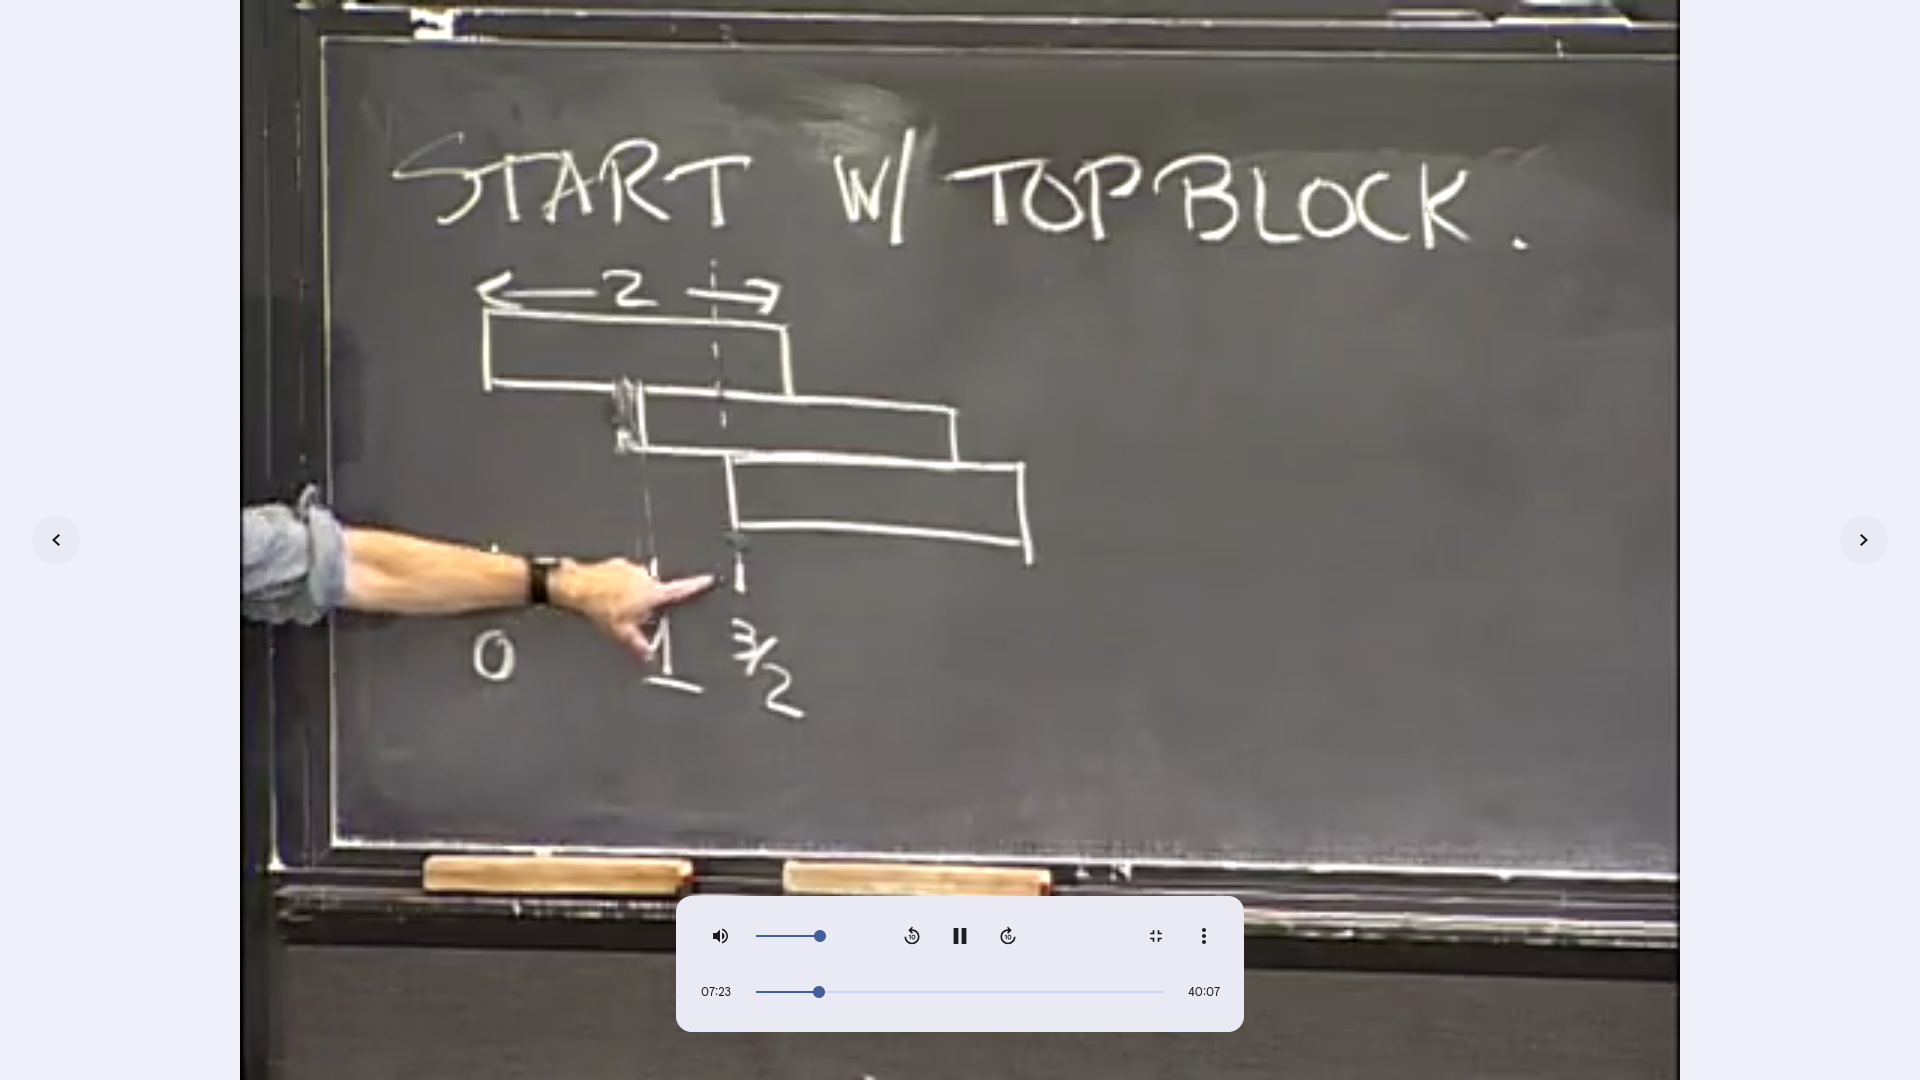 START W/ TOP BLOCK.
2
0 1 3/2
07:23 40:07